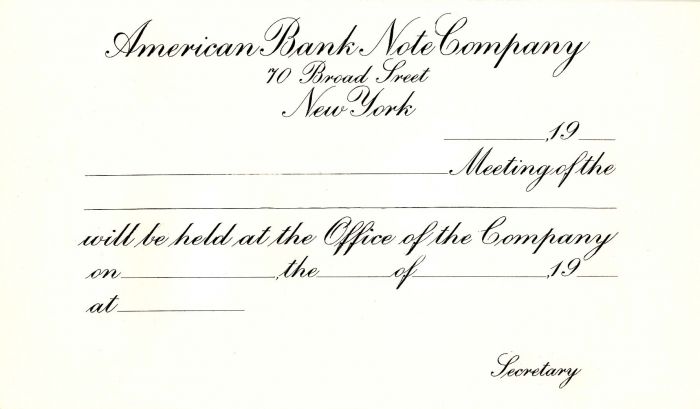 American Bank Note Company
70 Broad Sreet
New York
, 19
Meeting of the
will be held at the Office of the Company
on , the of , 19
at
Secretary